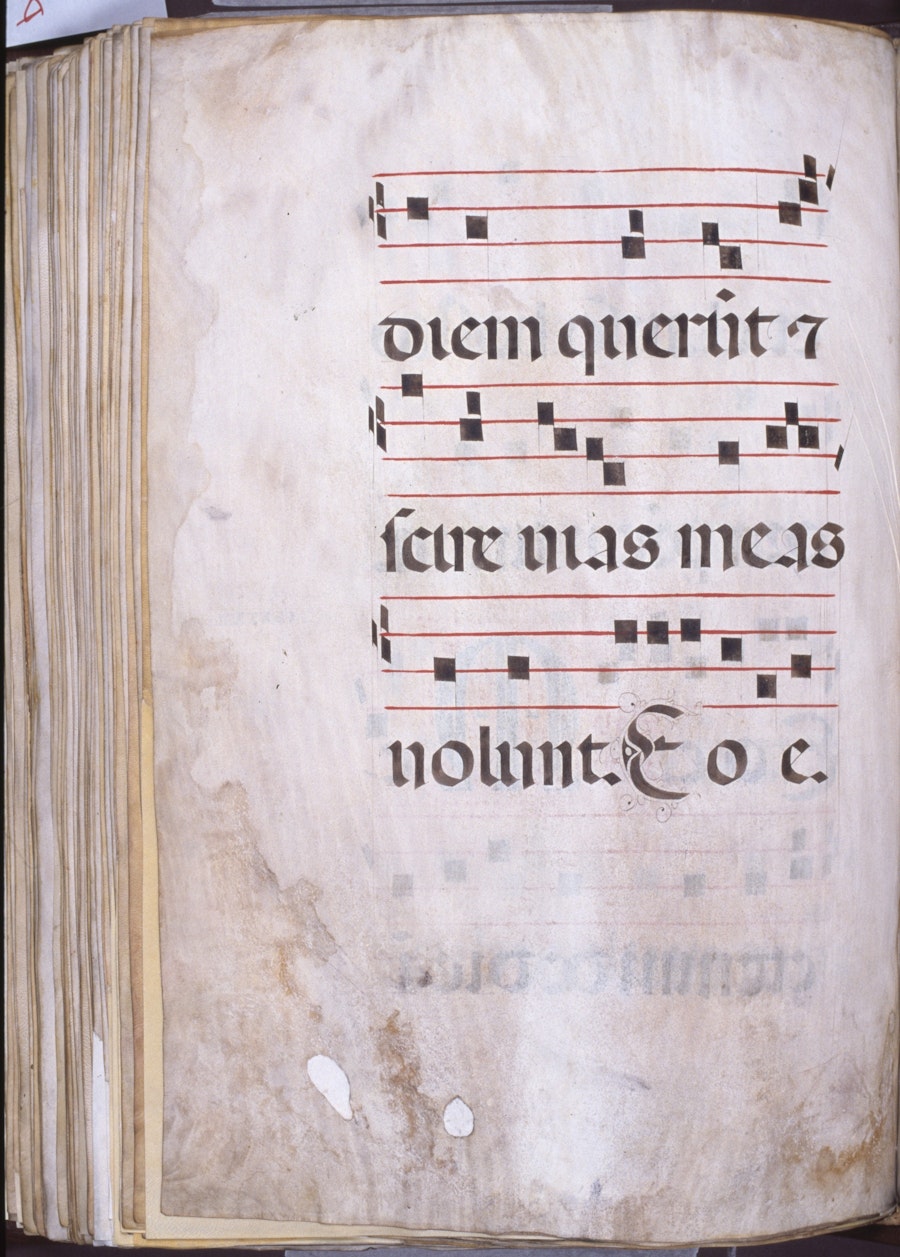 diem querūt ⁊
scire uias meas
uolunt. E o e.